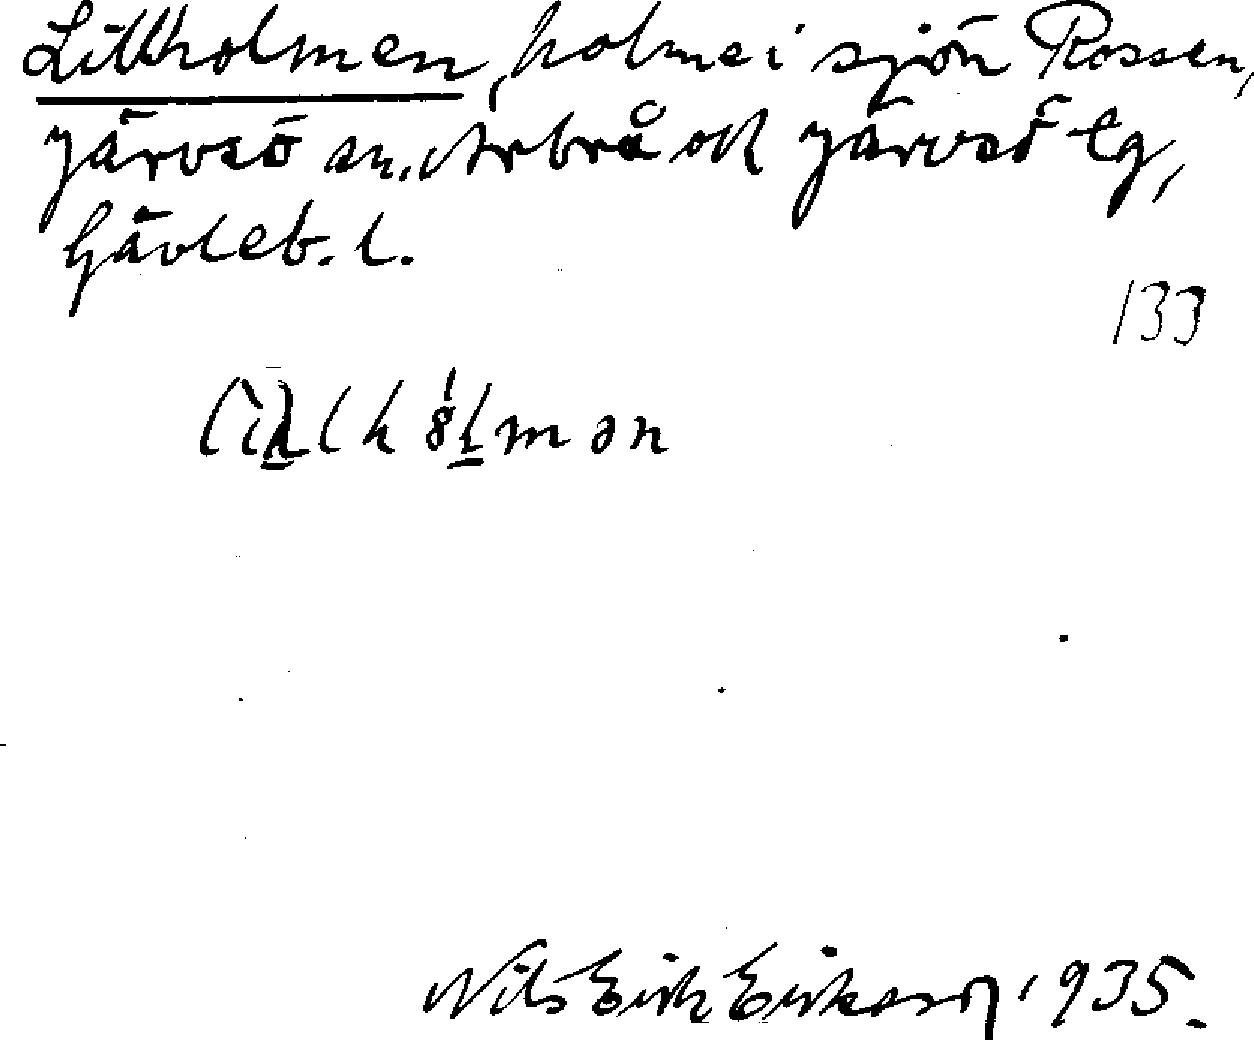 Lillholmen, holme i sjön Rossen,
Järvsö sn. Arbrå och Järvsö tg,
Gävleb. l.
133
Nils Erik Eriksson 1935.